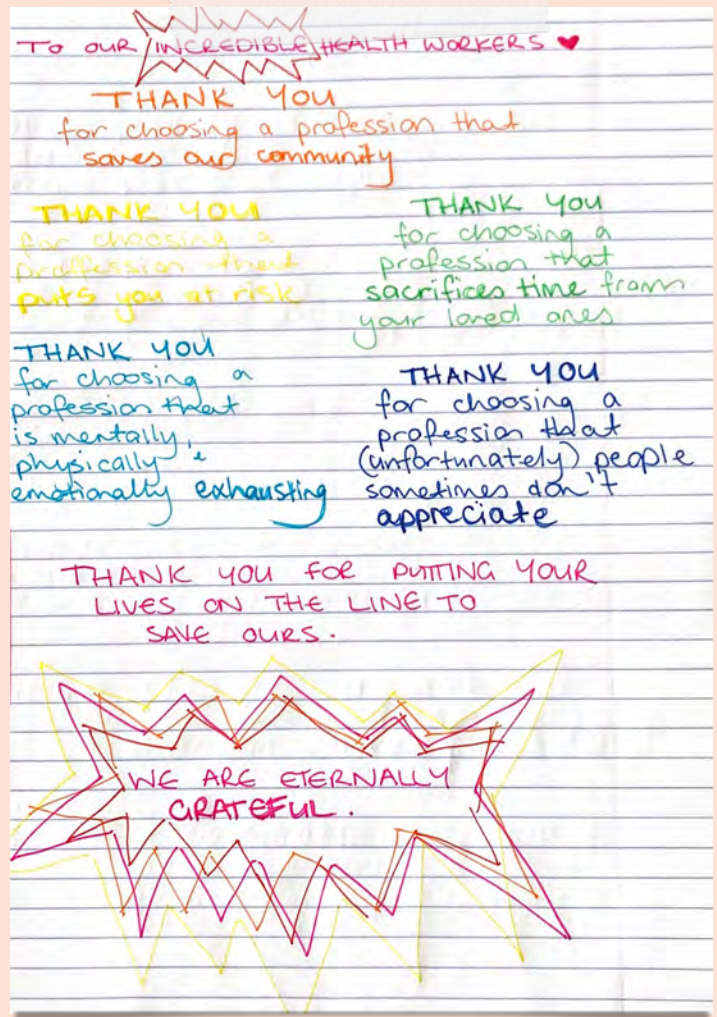 TO OUR INCREDIBLE HEALTH WORKERS ♥
THANK YOU
for choosing a profession that
saves our community
THANK YOU
for choosing a
proffession that
puts you at risk
THANK YOU
for choosing a
profession that
sacrifices time from
your loved ones
THANK YOU
for choosing a
profession that
is mentally,
physically &
emotionally exhausting
THANK YOU
for choosing a
profession that
(unfortunately) people
sometimes don't
appreciate
THANK YOU FOR PUTTING YOUR
LIVES ON THE LINE TO
SAVE OURS.
WE ARE ETERNALLY
GRATEFUL.